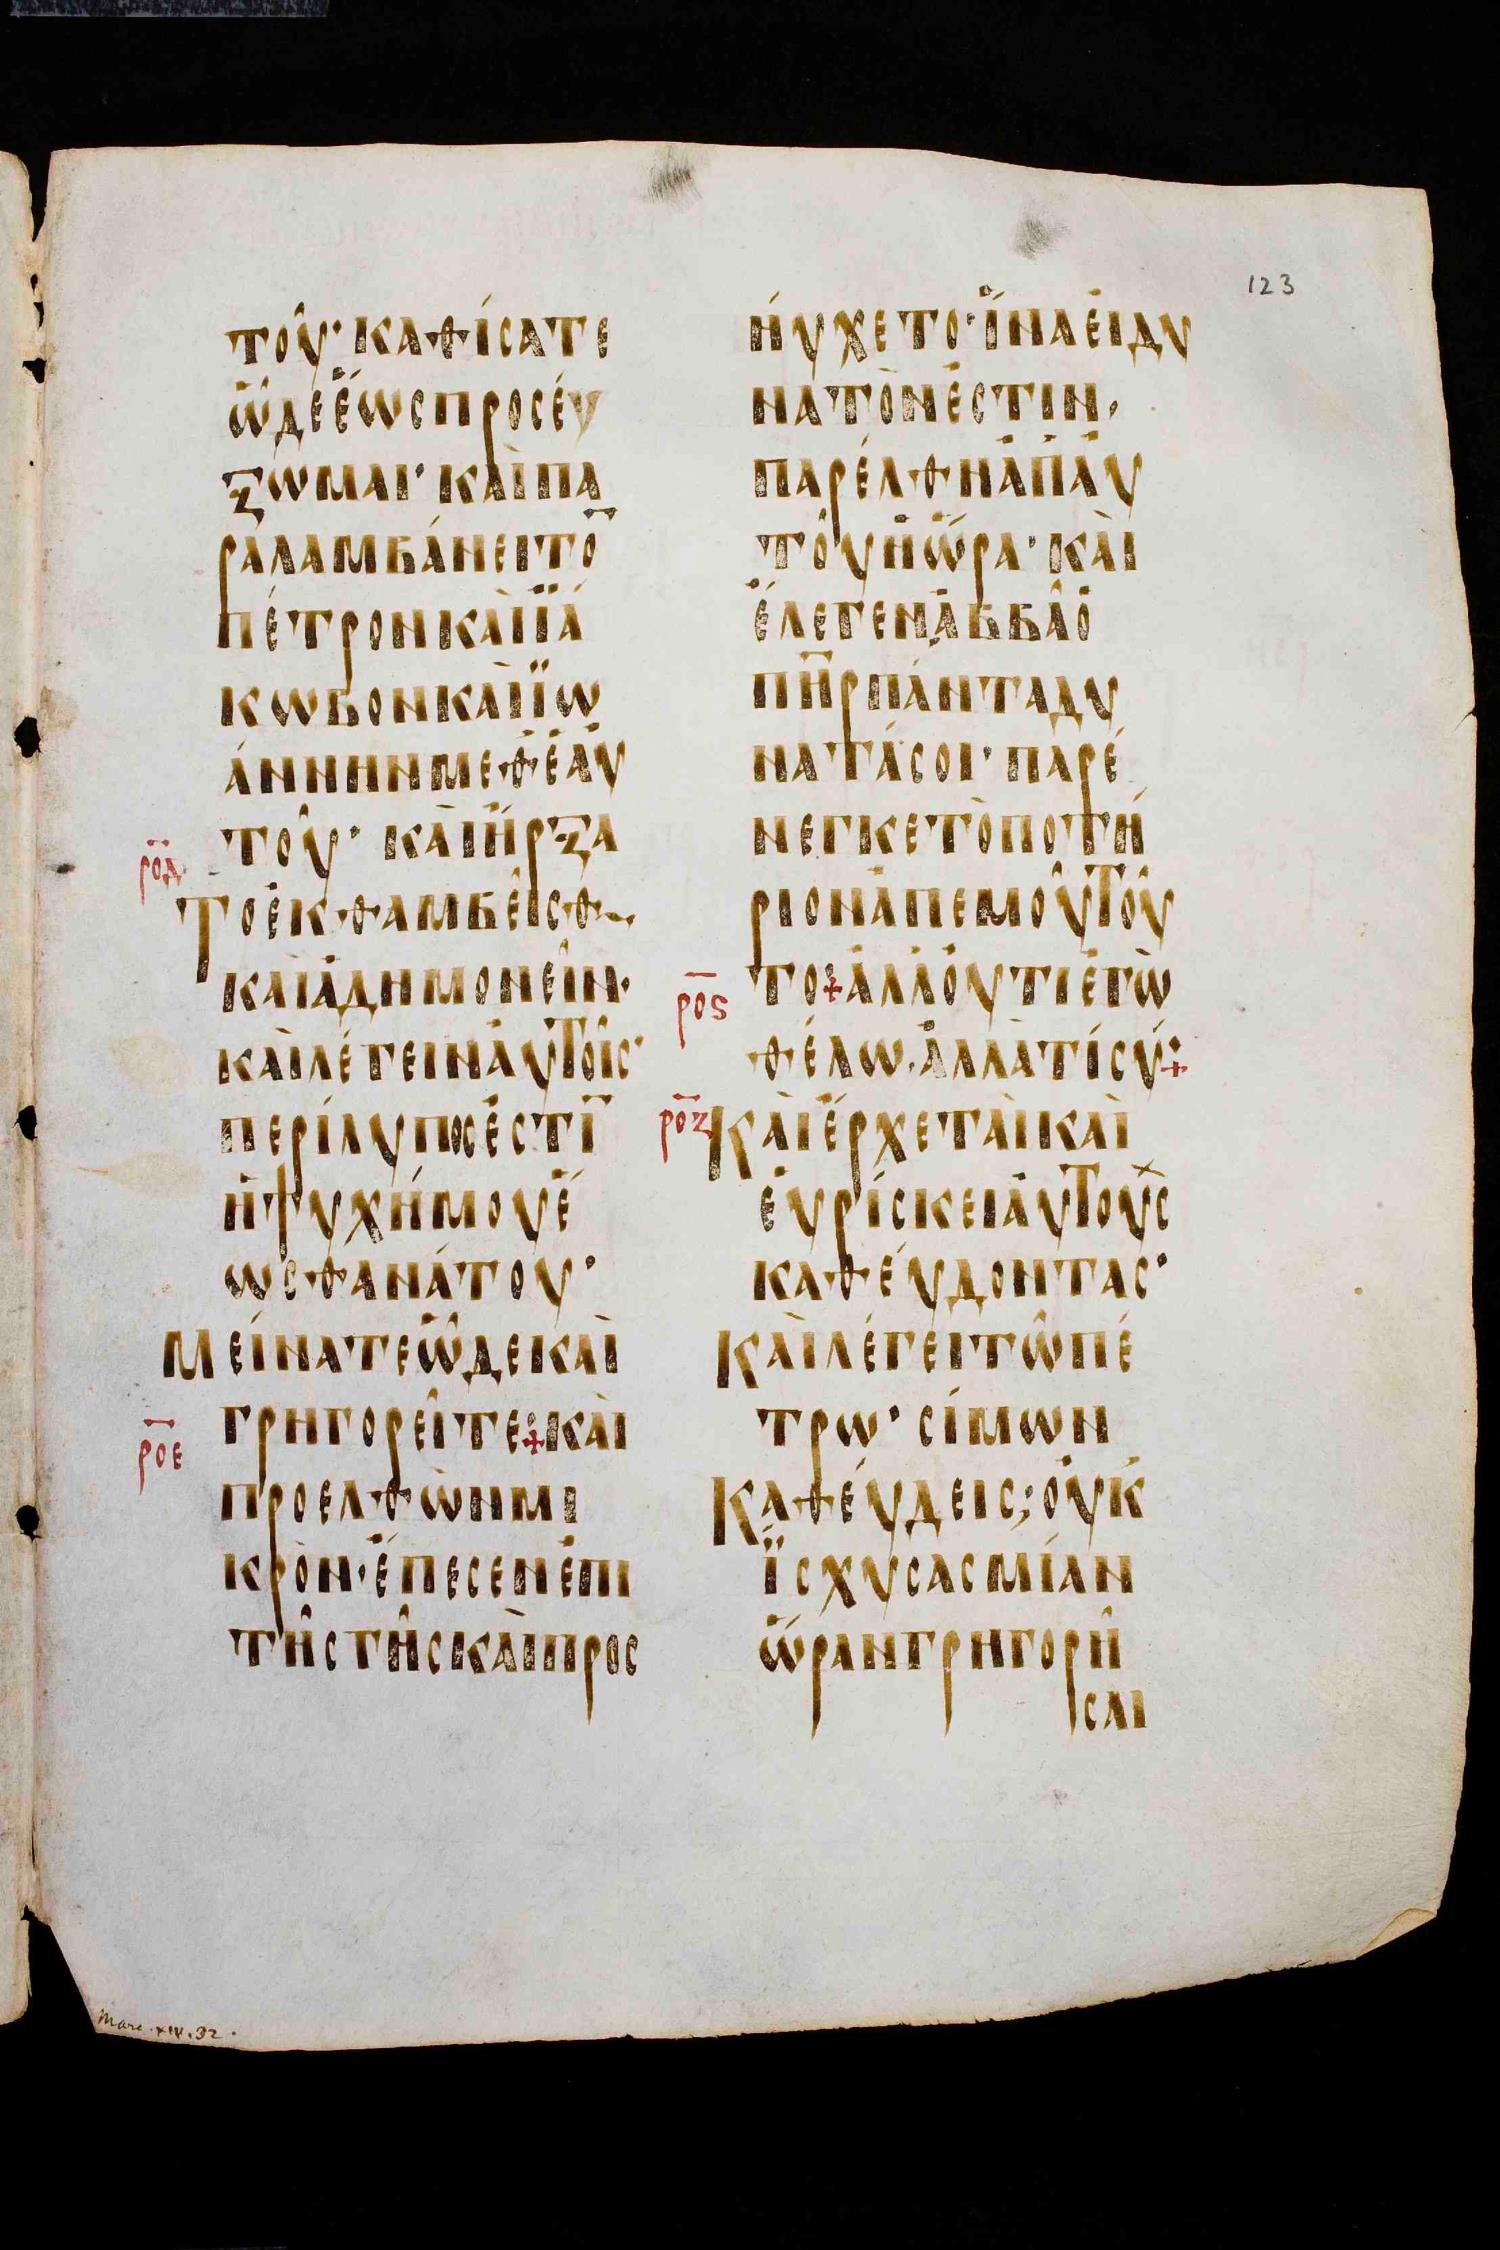 123
του̂· καθίσατε
ὧδε ἕως προσεύ
ξωμαι· καὶ πα
ραλαμβάνει το̄
πέτρον καὶ ϊά
κωβον καὶ ϊω
άννην μεθ ἑαυ
του̂· καὶ ἤρξα
ρο̄δ
Το ἐκθαμβεῖσθαι
καὶ ἀδημονεῖν·
καὶ λέγειν ἀυτοῖς·
περίλυπος ἐστῑ
ἡ ψυχή μου ἕ
ως θανάτου·
Μείνατε ὧδε καὶ
γρηγορεῖτε· καὶ
ρο̄ε
προελθὼν μι
κρὸν· ἔπεσεν ἐπι
τῆς γῆς καὶ προσ
ηύχετο· ἵνα εἰ δυ
νατὸν ἐστιν,
παρέλθη ἀπ ἀυ
του̂ ἡ ὥρα· καὶ
ἔλεγεν ἀββᾶ ὁ
πη̄ρ πάντα δυ
νατά σοι· παρέ
νεγκε τὸ ποτή
ριον ἀπ εμου̂ του̂
το· ἀλλ ὀυ τι ἐγὼ
ρο̄ϛ
θέλω. ἀλλὰ τί σύ·
ρο̄ζ
Καὶ ἔρχεται καὶ
ἑυρίσκει ἀυτοὺς
καθέυδοντας·
Καὶ λέγει τῶ πέ
τρω· σίμων
Καθέυδεις; ὀυκ
ἴσχυσας μίαν
ὥραν γρηγορῆ
σαι
Marc. XIV. 32.